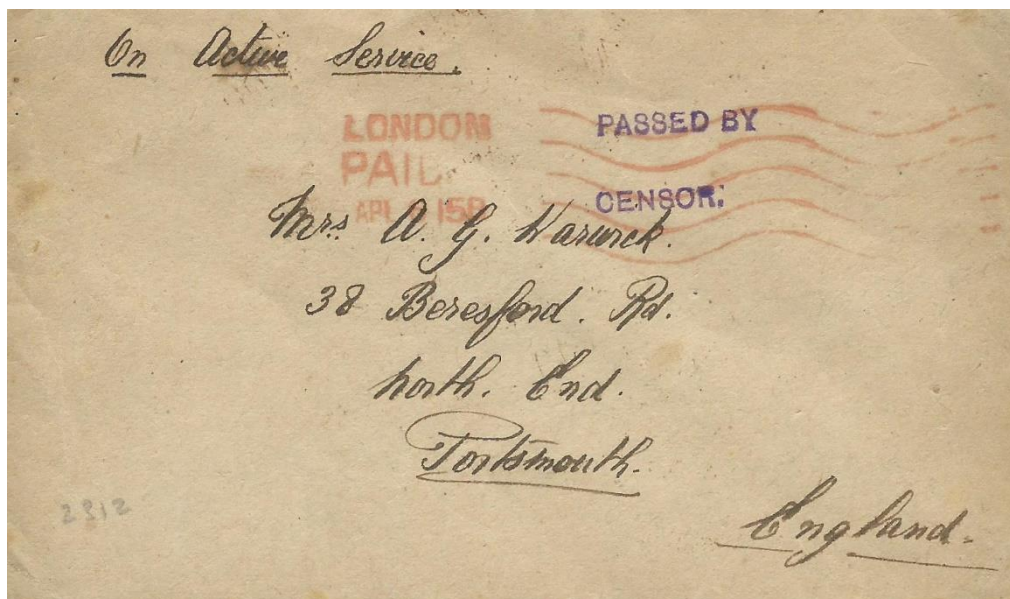 On Active Service.
LONDON
PAID
PASSED BY
CENSOR.
Mrs. A. G. Warwick.
38 Beresford. Rd.
North. End.
Portsmouth.
England.
2312